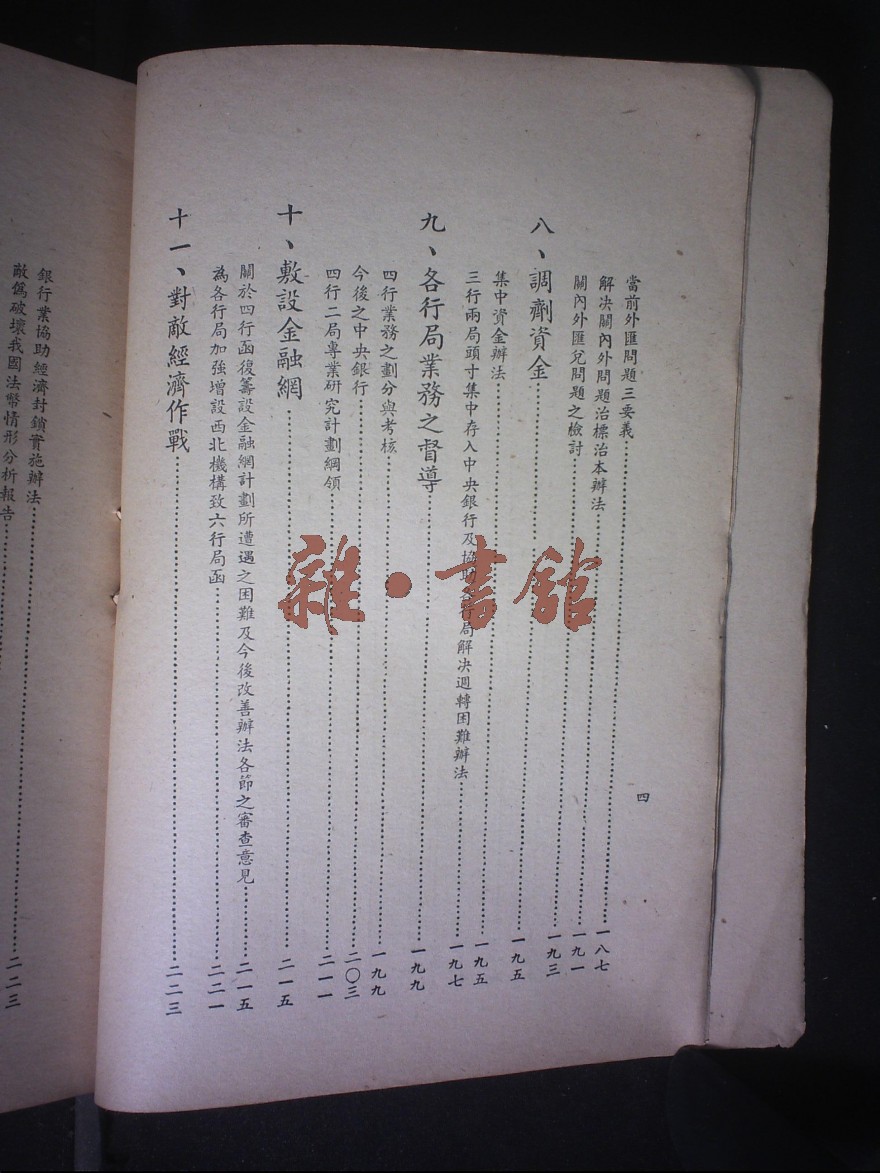 四
當前外匯問題三要義……一八七
解決關內外問題治標治本辦法……一九一
關內外匯兌問題之檢討……一九三
八、調劑資金……一九五
集中資金辦法……一九五
三行兩局頭寸集中存入中央銀行及協助局解決週轉困難辦法……一九七
九、各行局業務之督導……一九九
四行業務之劃分與考核……一九九
今後之中央銀行……二〇三
四行二局專業研究計劃綱領……二一一
十、敷設金融網……二一五
關於四行函復籌設金融網計劃所遭遇之困難及今後改善辦法各節之審查意見……二一五
為各行局加強增設西北機構致六行局函……二二一
十一、對敵經濟作戰……二二三
銀行業協助經濟封鎖實施辦法……二二三
敵偽破壞我國法幣情形分析報告……
雜·書館